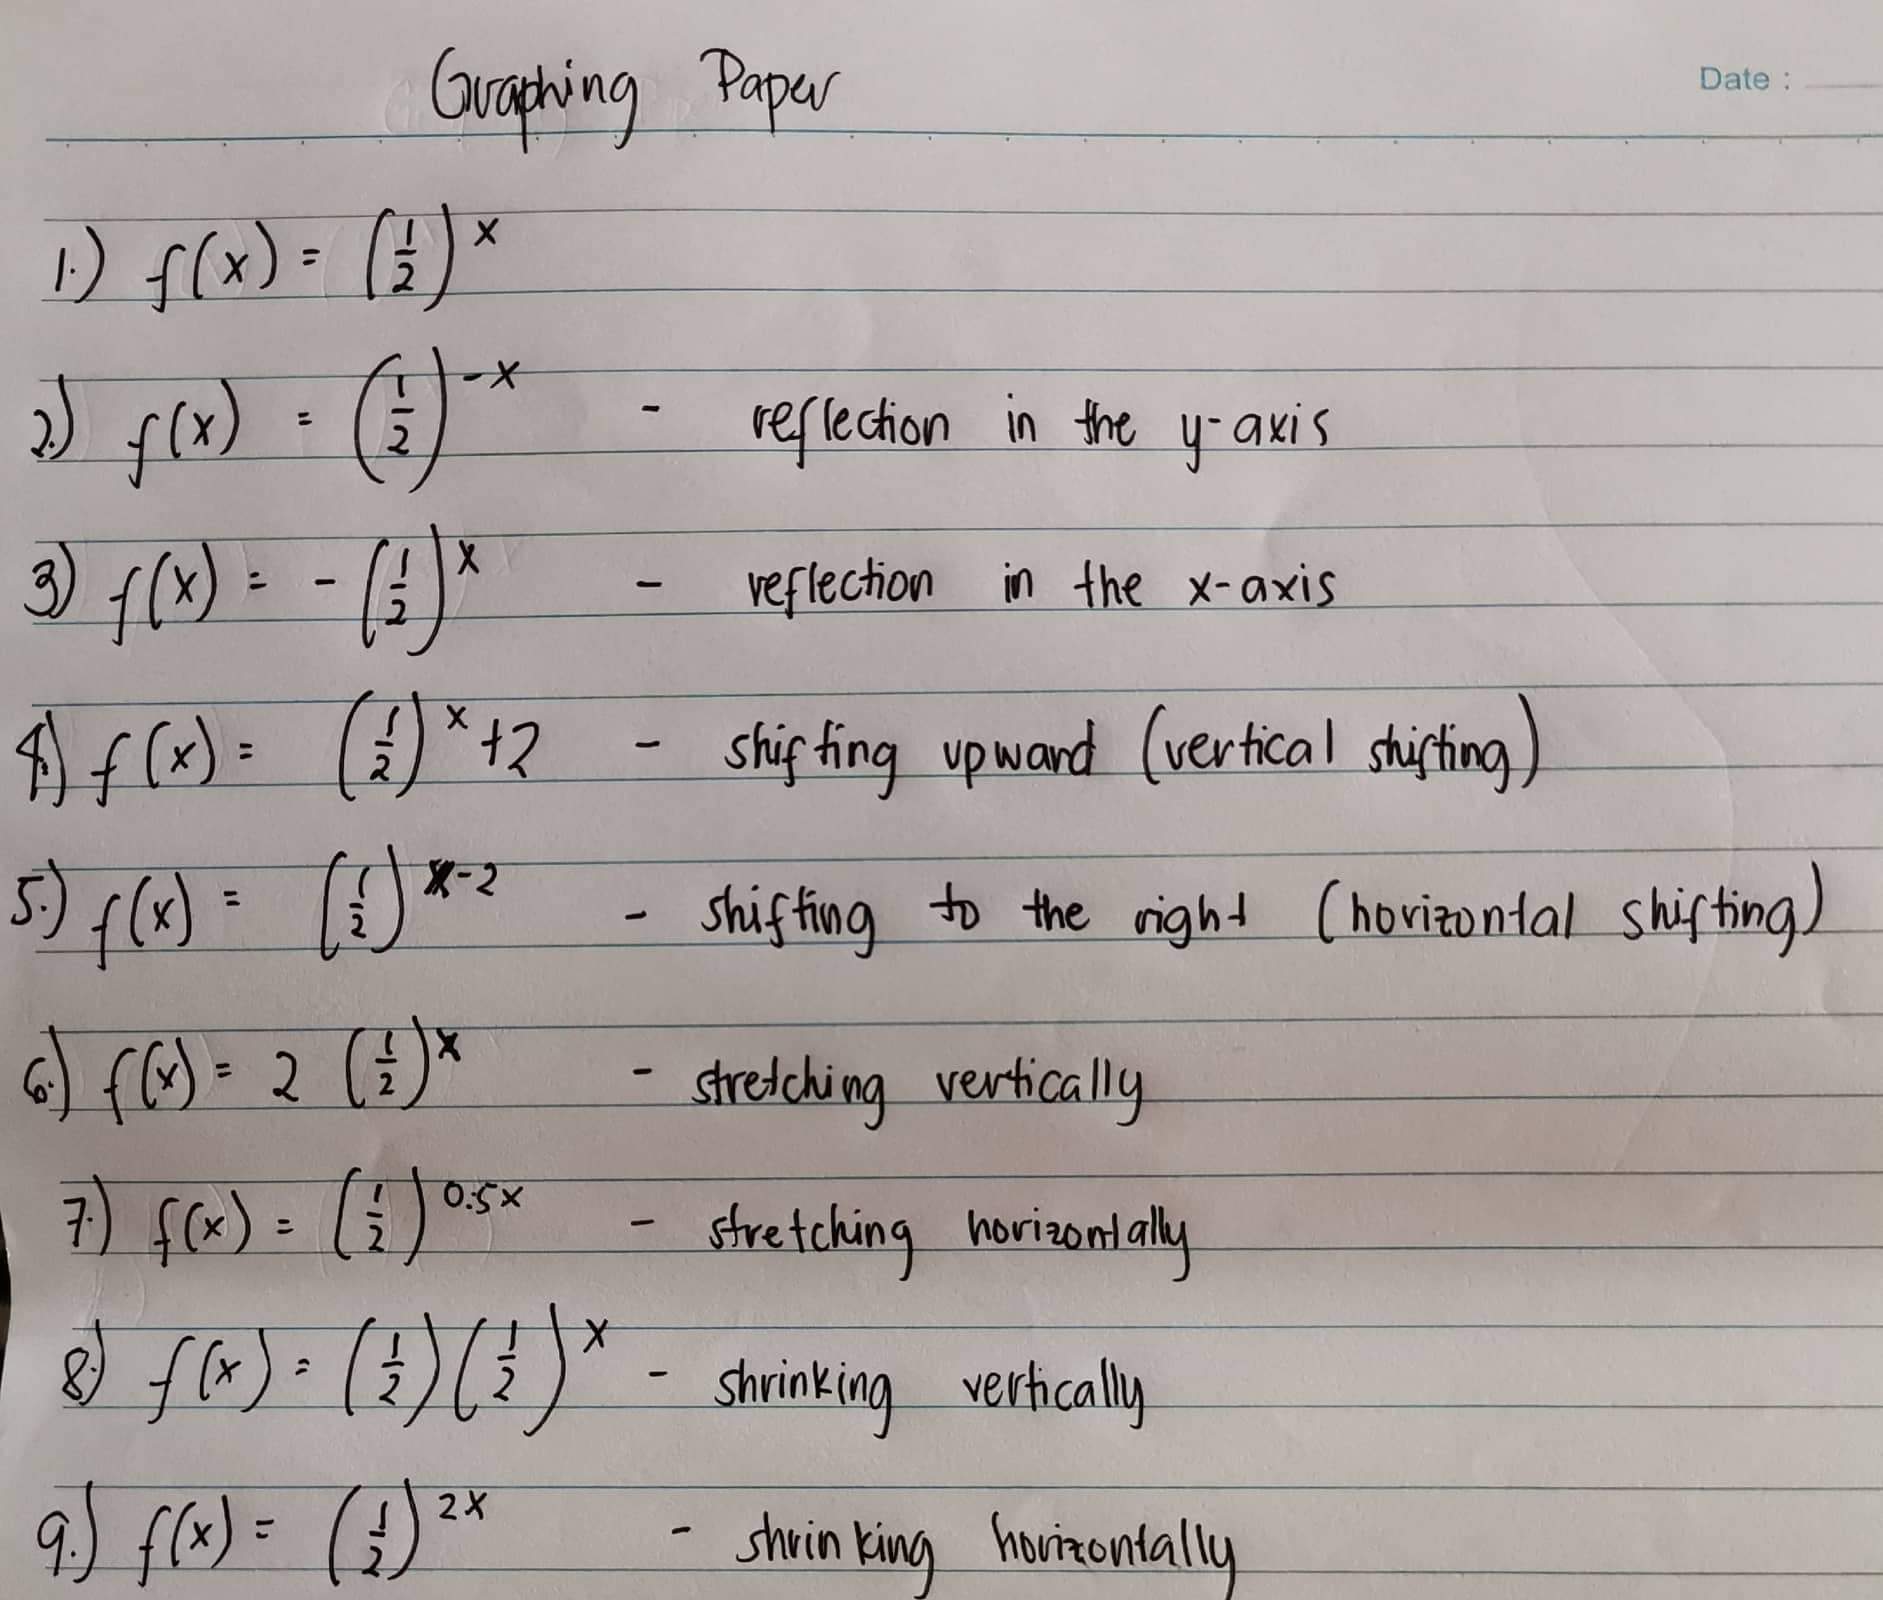 Graphing Paper
Date :
1.) f(x) = (1/2)^x
2.) f(x) = (1/2)^-x - reflection in the y-axis
3) f(x) = - (1/2)^x - reflection in the x-axis
4.) f(x) = (1/2)^x +2 - shifting upward (vertical shifting)
5.) f(x) = (1/2)^x-2 - shifting to the right (horizontal shifting)
6.) f(x) = 2 (1/2)^x - stretching vertically
7.) f(x) = (1/2)^0.5x - stretching horizontally
8.) f(x) = (1/2)(1/2)^x - shrinking vertically
9.) f(x) = (1/2)^2x - shrinking horizontally